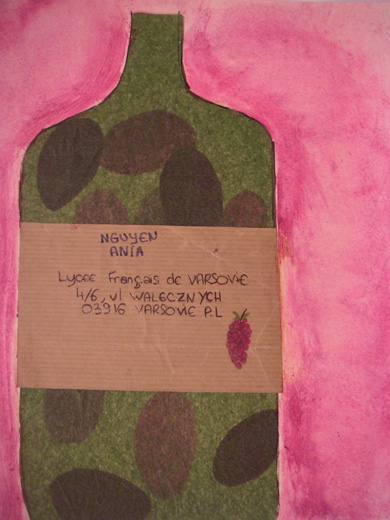 NGUYEN
ANIA
Lycee Français de VARSOVIE
4/6, ul WALECZNYCH
03916 VARSOVIE P.L